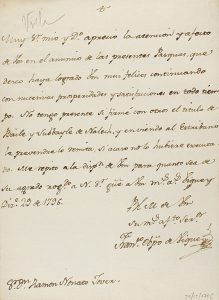 Muy Sr. mio y Dr. aprecio la atencion y afecto
de Vm en el anuncio de las presentes Pasquas, que
deseo haya logrado Vm muy felices continuando
con nuevas prosperidades y satisfacciones en todo tiem-
po. No tengo presente si firmé con otros el titulo de
Baile y Subbayle de y enviendo al Escribano
le prevendre lo remita, si acaso no lo hubiera executa-
do. Me repito a la dispon. de Vm para quanto sea de
su agrado rogdo. a N. Sr. que a Vm ms. as. Vique y
Dizre. 23 de 1796.
BLM de Vm
Su mo. afto. Servr.
Franco. Obpo de Vique
Sr. Dn. Ramon Novato